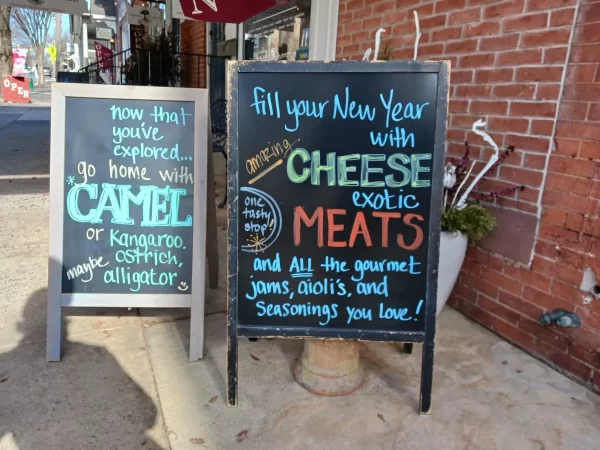 OPEN
now that
you've
explored...
go home with
*CAMEL
or Kangaroo,
ostrich,
maybe
alligator
fill your New Year
with
amazing
CHEESE
exotic
one
tasty
stop!
MEATS
and ALL the gourmet
jams, aioli's, and
Seasonings you Love!